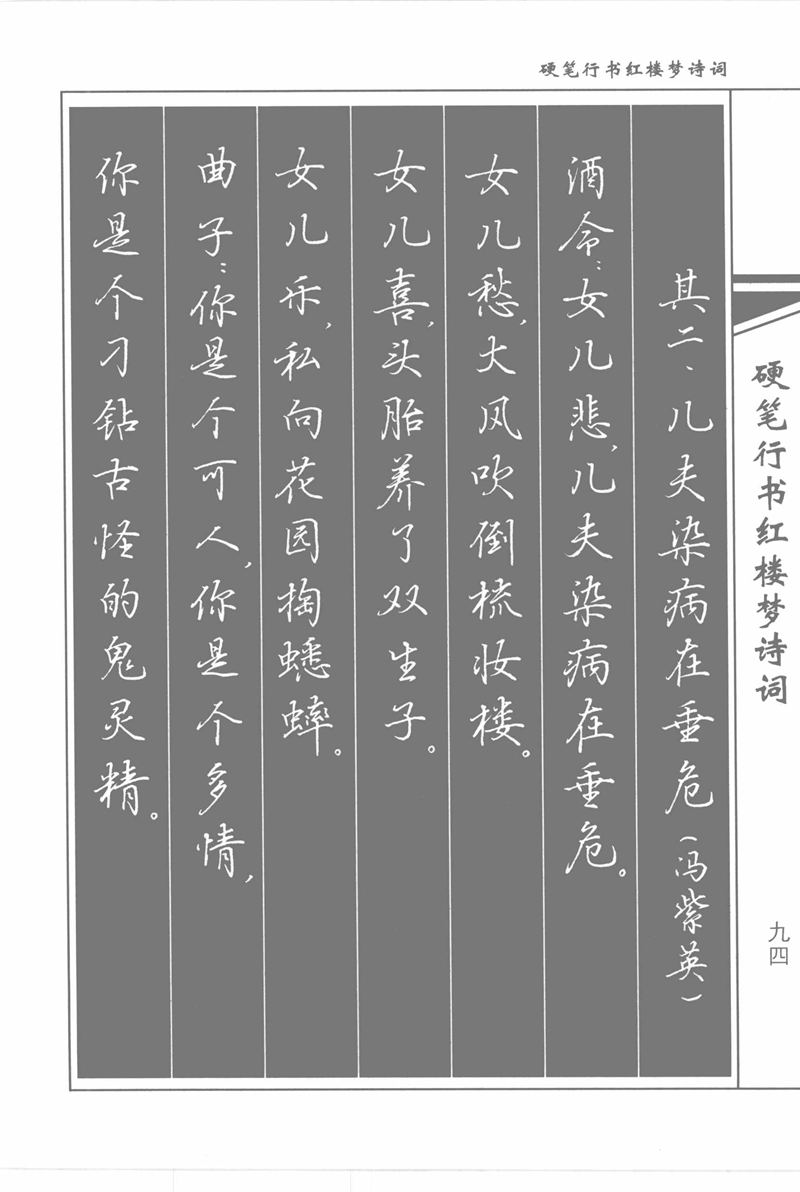 硬笔行书红楼梦诗词
硬笔行书红楼梦诗词
九四
其二、儿夫染病在垂危(冯紫英)
酒令:女儿悲,儿夫染病在垂危。
女儿愁,大风吹倒梳妆楼。
女儿喜,头胎养了双生子。
女儿乐,私向花园掏蟋蟀。
曲子:你是个可人,你是个多情,
你是个刁钻古怪的鬼灵精。